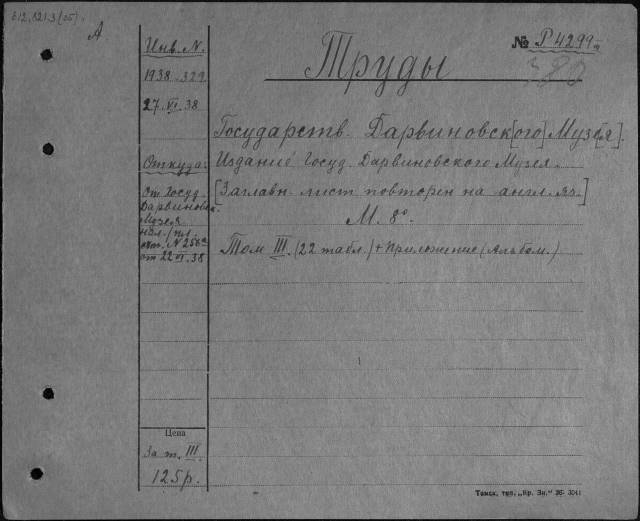 612,821.3(05).
А
№ Р4299а
Инв. N.
1938-329
27.VI.38
Труды
Государств. Дарвиновск[ого] Музе[я].
Откуда:
Издание Госуд. Дарвиновского Музея.
[Заглавн. лист повторен на англ. яз.]
М. 8°.
Том III. (22 табл.) + Приложение (Альбом.)
от Госуд.
Дарвиновск.
Музея
нал./пл.
от 22 VI.38
Цена
За т. III
125р.
Томск, тип. „Кр. Зн." 36- 3041